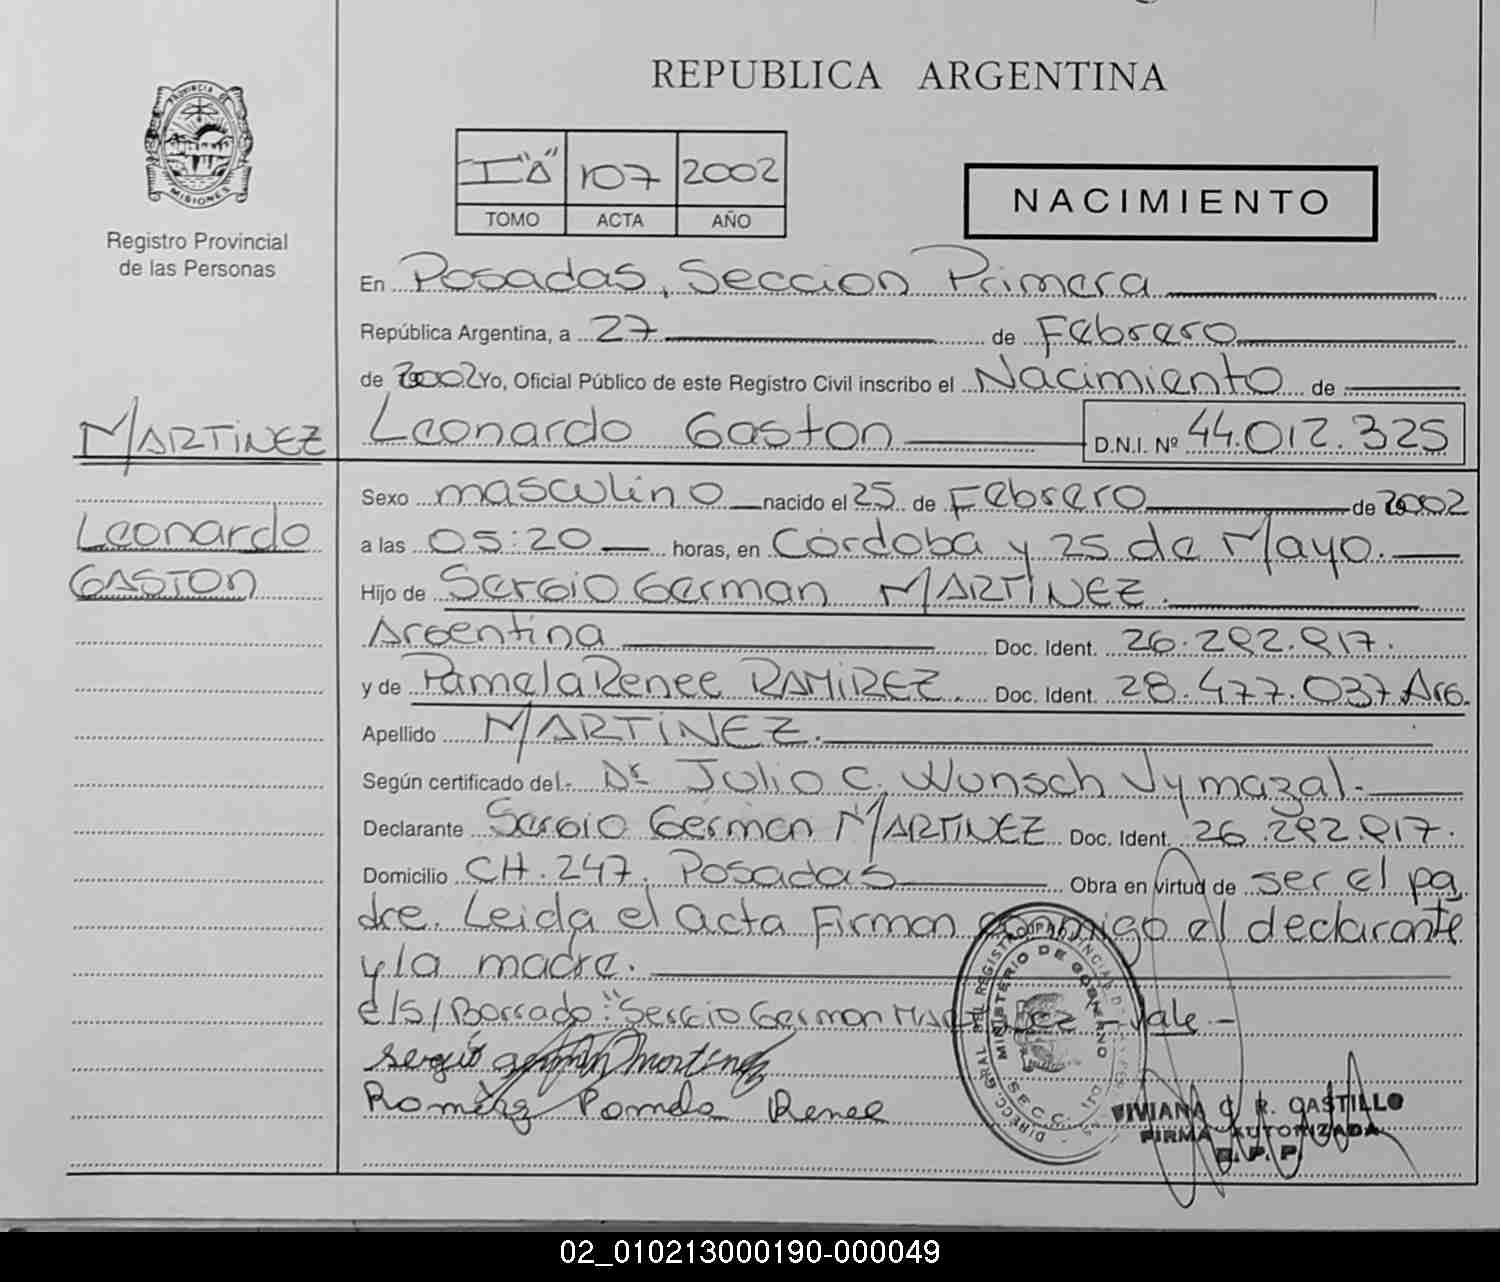 REPUBLICA ARGENTINA
PROVINCIA DE MISIONES
Registro Provincial
de las Personas
I "A" 107 2002
TOMO ACTA AÑO
NACIMIENTO
En Posadas, Seccion Primera
República Argentina, a 27 de Febrero
de 2002 Yo, Oficial Público de este Registro Civil inscribo el Nacimiento de
MARTINEZ
Leonardo Gaston D.N.I. Nº 44.012.325
Leonardo
GASTON
Sexo masculino nacido el 25 de Febrero de 2002
a las 05:20 horas, en Córdoba y 25 de Mayo.
Hijo de Sergio German MARTINEZ.
Argentina Doc. Ident. 26.292.917.
y de Pamela Renee RAMIREZ Doc. Ident. 28.477.037 Arg.
Apellido MARTINEZ.
Según certificado del Dr Julio C. Wunsch Vymazal.
Declarante Sergio Germán MARTINEZ Doc. Ident. 26.292.917.
Domicilio CH. 247. Posadas Obra en virtud de ser el pa
dre. Leida el acta Firman conmigo el declarante
y la madre.
e/s/Borrado: "Sergio German Martinez - Vale -
Sergio german martinez
Pamela Renee
MINISTERIO DE GOBIERNO
VIVIANA C. R. CASTILLO
FIRMA AUTORIZADA
R. P. P.
02_010213000190-000049